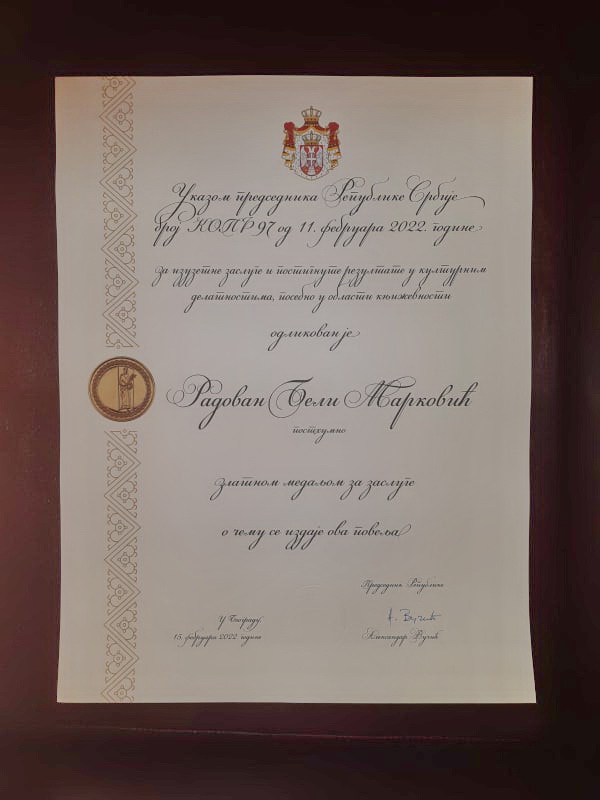 Указом председника Републике Србије
број КОПР 97 од 11. фебруара 2022. године
за изузетне заслуге и постигнуте резултате у културним
делатностима, посебно у области књижевности
одликован је
Радован Бели Марковић
постхумно
златном медаљом за заслуге
о чему се издаје ова повеља
Председник Републике
У Београду
15. фебруара 2022. године
А. Вучић
Александар Вучић